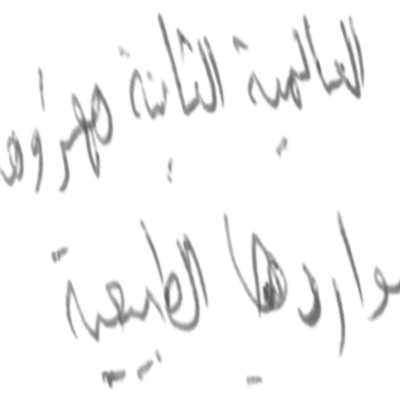 العالمية الثانية
مواردها الطبيعية